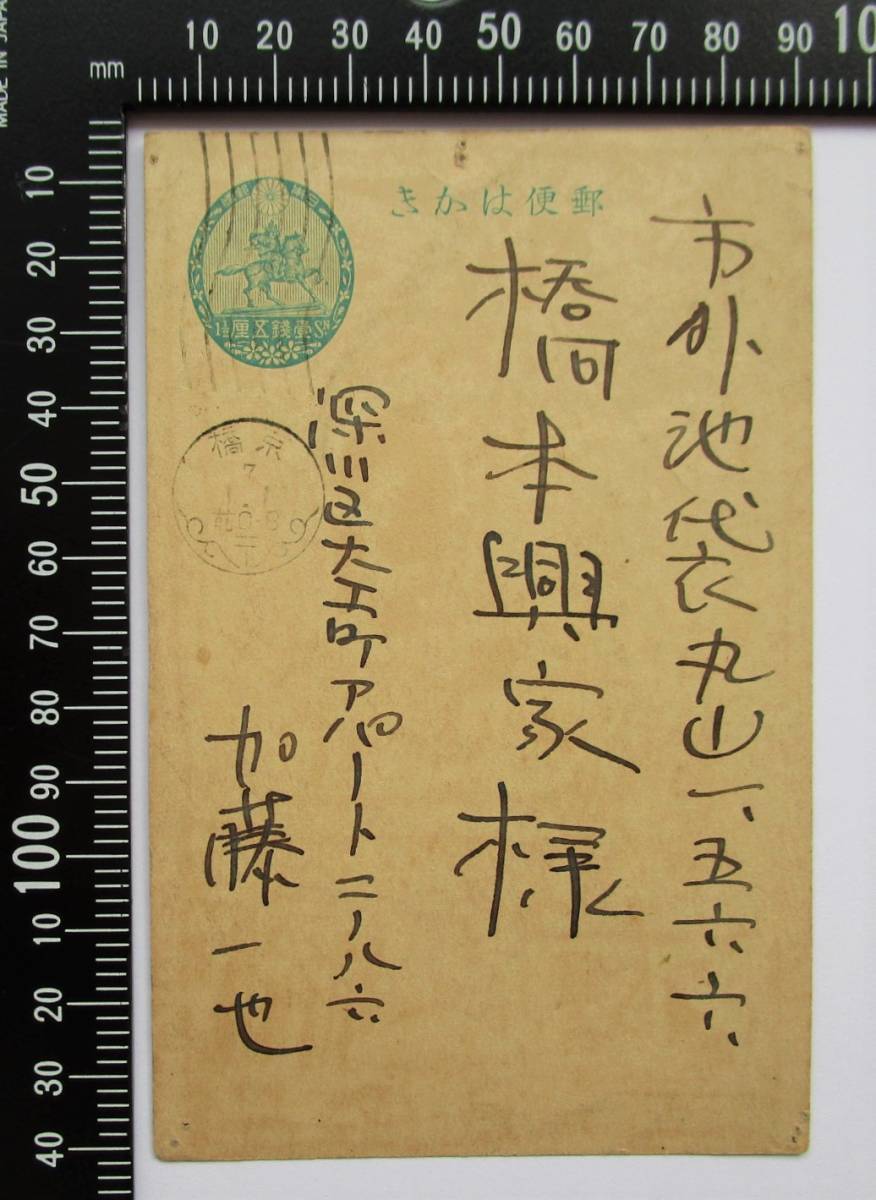 MADE IN JAPAN
10 20 30 40 50 60 70 80 90 10
mm
10
20
30
40
50
60
70
80
90
100
10
20
30
40
郵便はかき
1½ 壹錢五厘 Sn
京橋
7
前0-8
市外池袋丸山一、五六六
橋本興家様
深川区大工町アパート二ノ八六
加藤一也